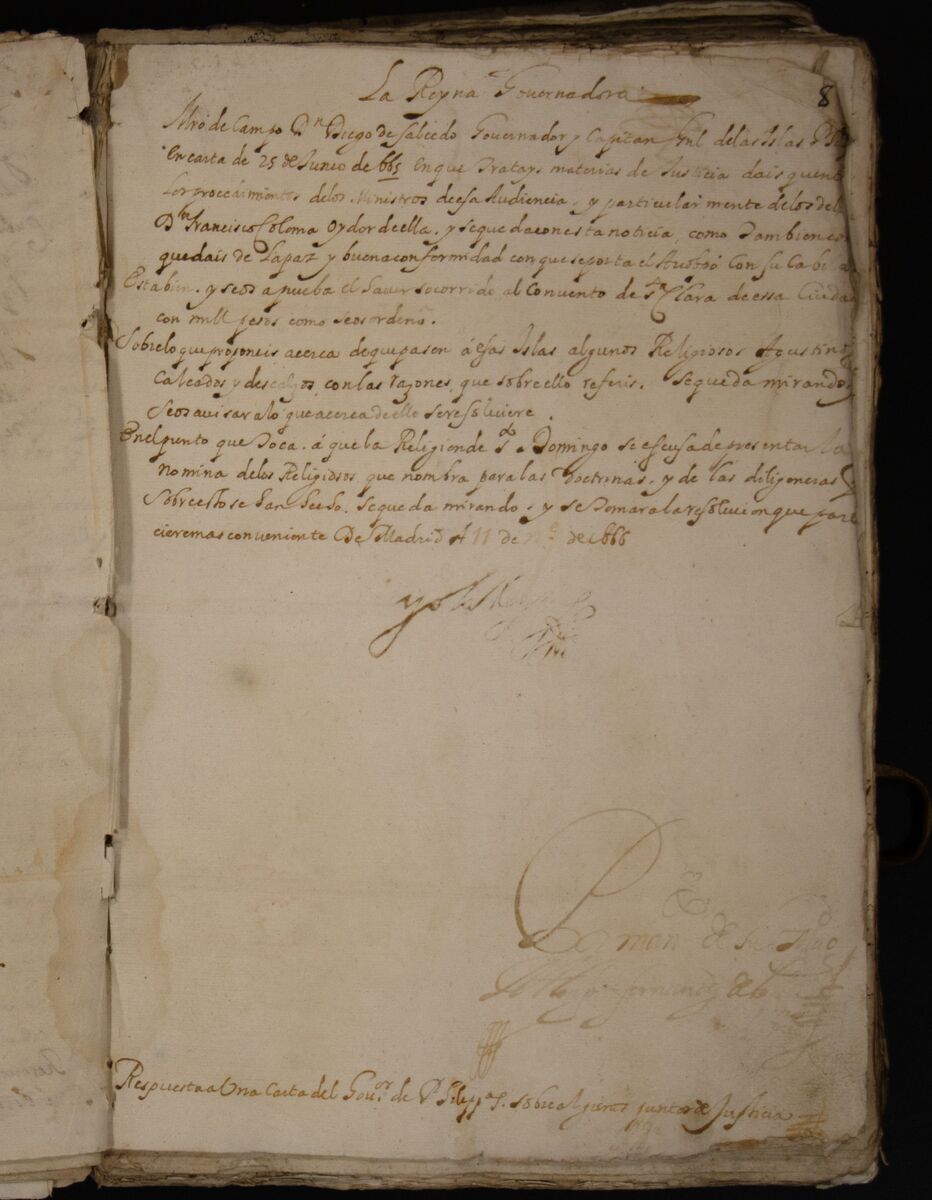 8
La Reyna Governadora
Mrō de Campo Dn Diego de Salcedo Governador y Capitan Gnl de las Islas
En carta de 25 de Junio de 665 en que tratays materias de Justicia dais quen
los proccdimientos de los Ministros de esa Audiencia, y particularmente de los de
Dn Francisco Coloma oydor de ella, y se queda con esta noticia, como tambien
que dais de la paz y buena conformidad con que se porta el Arobpō con su Cabil
Esta bien, y se os aprueba el haver socorrido al Convento de Sta Clara de essa Ciudad
con mill pesos como se os ordenō.
Sobre lo que proponeis acerca de que pasen á esas Islas algunos Religiosos Agustinos
Calcados y descalços, con las razones, que sobre ello referis. Se queda mirando y
se os avisara lo que acerca de ello se resolviere.
En el punto que toca á que la Religion de Sto Domingo se escusa de presentar la
nomina de los Religiosos que nombra para las Doctrinas, y de las diligencias q
sobre esto se han hecho. Se queda mirando, y se tomara la resolucion que pare
ciere mas conveniente De Madrid A 11 de de 1666
yo la Reyna
Por mando de su Magd
fernandez de
Respuesta a Una Carta del Gouor de Philippas sobre algunos puntos de Justicia